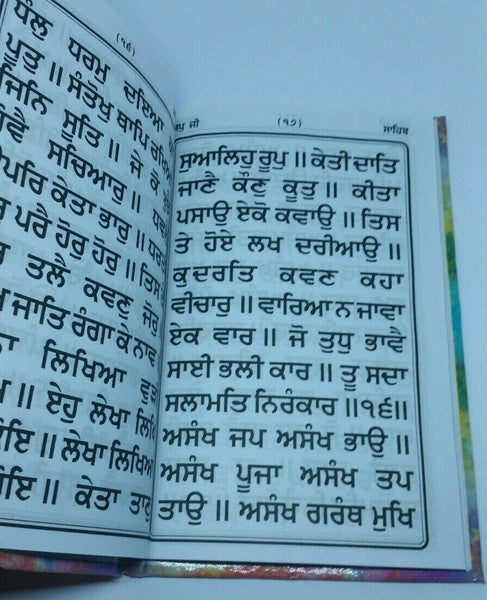 (੧੬)
ਧੌਲੁ ਧਰਮੁ ਦਇਆ
ਪੂਤੁ ॥ ਸੰਤੋਖੁ ਥਾਪਿ ਰਖਿਆ
ਜਿਨਿ ਸੂਤਿ ॥ ਜੇ ਕੋ
ਹੋਵੈ ਸਚਿਆਰੁ ॥ ਧਵਲੈ
ਉਪਰਿ ਕੇਤਾ ਭਾਰੁ ॥ ਧਰਤੀ
ਪਰੈ ਹੋਰੁ ਹੋਰੁ ॥ ਤਿਸ
ਤਲੈ ਕਵਣੁ ਜੋਰੁ
ਜਾਤਿ ਰੰਗਾ ਕੇ ਨਾਵ
ਲਿਖਿਆ ਵੁੜੀ
॥ ਏਹੁ ਲੇਖਾ ਲਿਖਿ
॥ ਲੇਖਾ ਲਿਖਿਆ
॥ ਕੇਤਾ ਤਾਣੁ
ਜਪੁ ਜੀ (੧੭) ਸਾਹਿਬ
ਸੁਆਲਿਹੁ ਰੂਪੁ ॥ ਕੇਤੀ ਦਾਤਿ
ਜਾਣੈ ਕੌਣੁ ਕੂਤੁ ॥ ਕੀਤਾ
ਪਸਾਉ ਏਕੋ ਕਵਾਉ ॥ ਤਿਸ
ਤੇ ਹੋਏ ਲਖ ਦਰੀਆਉ ॥
ਕੁਦਰਤਿ ਕਵਣ ਕਹਾ
ਵੀਚਾਰੁ ॥ ਵਾਰਿਆ ਨ ਜਾਵਾ
ਏਕ ਵਾਰ ॥ ਜੋ ਤੁਧੁ ਭਾਵੈ
ਸਾਈ ਭਲੀ ਕਾਰ ॥ ਤੂ ਸਦਾ
ਸਲਾਮਤਿ ਨਿਰੰਕਾਰ ॥੧੬॥
ਅਸੰਖ ਜਪ ਅਸੰਖ ਭਾਉ ॥
ਅਸੰਖ ਪੂਜਾ ਅਸੰਖ ਤਪ
ਤਾਉ ॥ ਅਸੰਖ ਗਰੰਥ ਮੁਖਿ